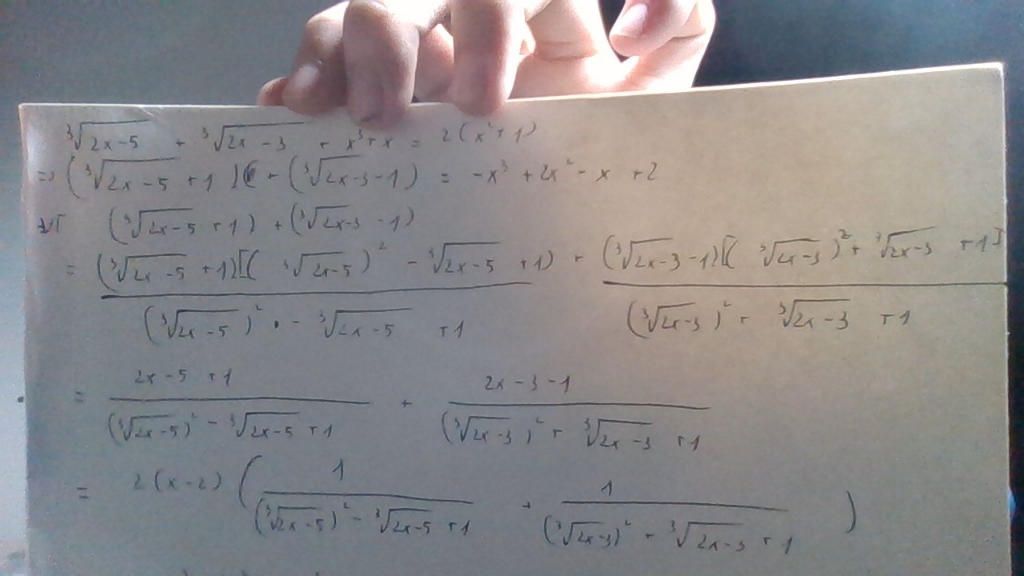 ∛(2x-5) + ∛(2x-3) + x³+x = 2(x²+1)
=> (∛(2x-5) +1) + (∛(2x-3) -1) = -x³ +2x² - x +2
(∛(2x-5) +1) + (∛(2x-3) -1)
= (∛(2x-5) +1)[(∛(2x-5))² - ∛(2x-5) +1) / ((∛(2x-5))² - ∛(2x-5) +1) + (∛(2x-3) -1)[(∛(2x-3))² + ∛(2x-3) +1] / ((∛(2x-3))² + ∛(2x-3) +1)
= (2x-5 +1) / ((∛(2x-5))² - ∛(2x-5) +1) + (2x-3-1) / ((∛(2x-3))² + ∛(2x-3) +1)
= 2(x-2) (1 / ((∛(2x-5))² - ∛(2x-5) +1) + 1 / ((∛(2x-3))² + ∛(2x-3) +1))